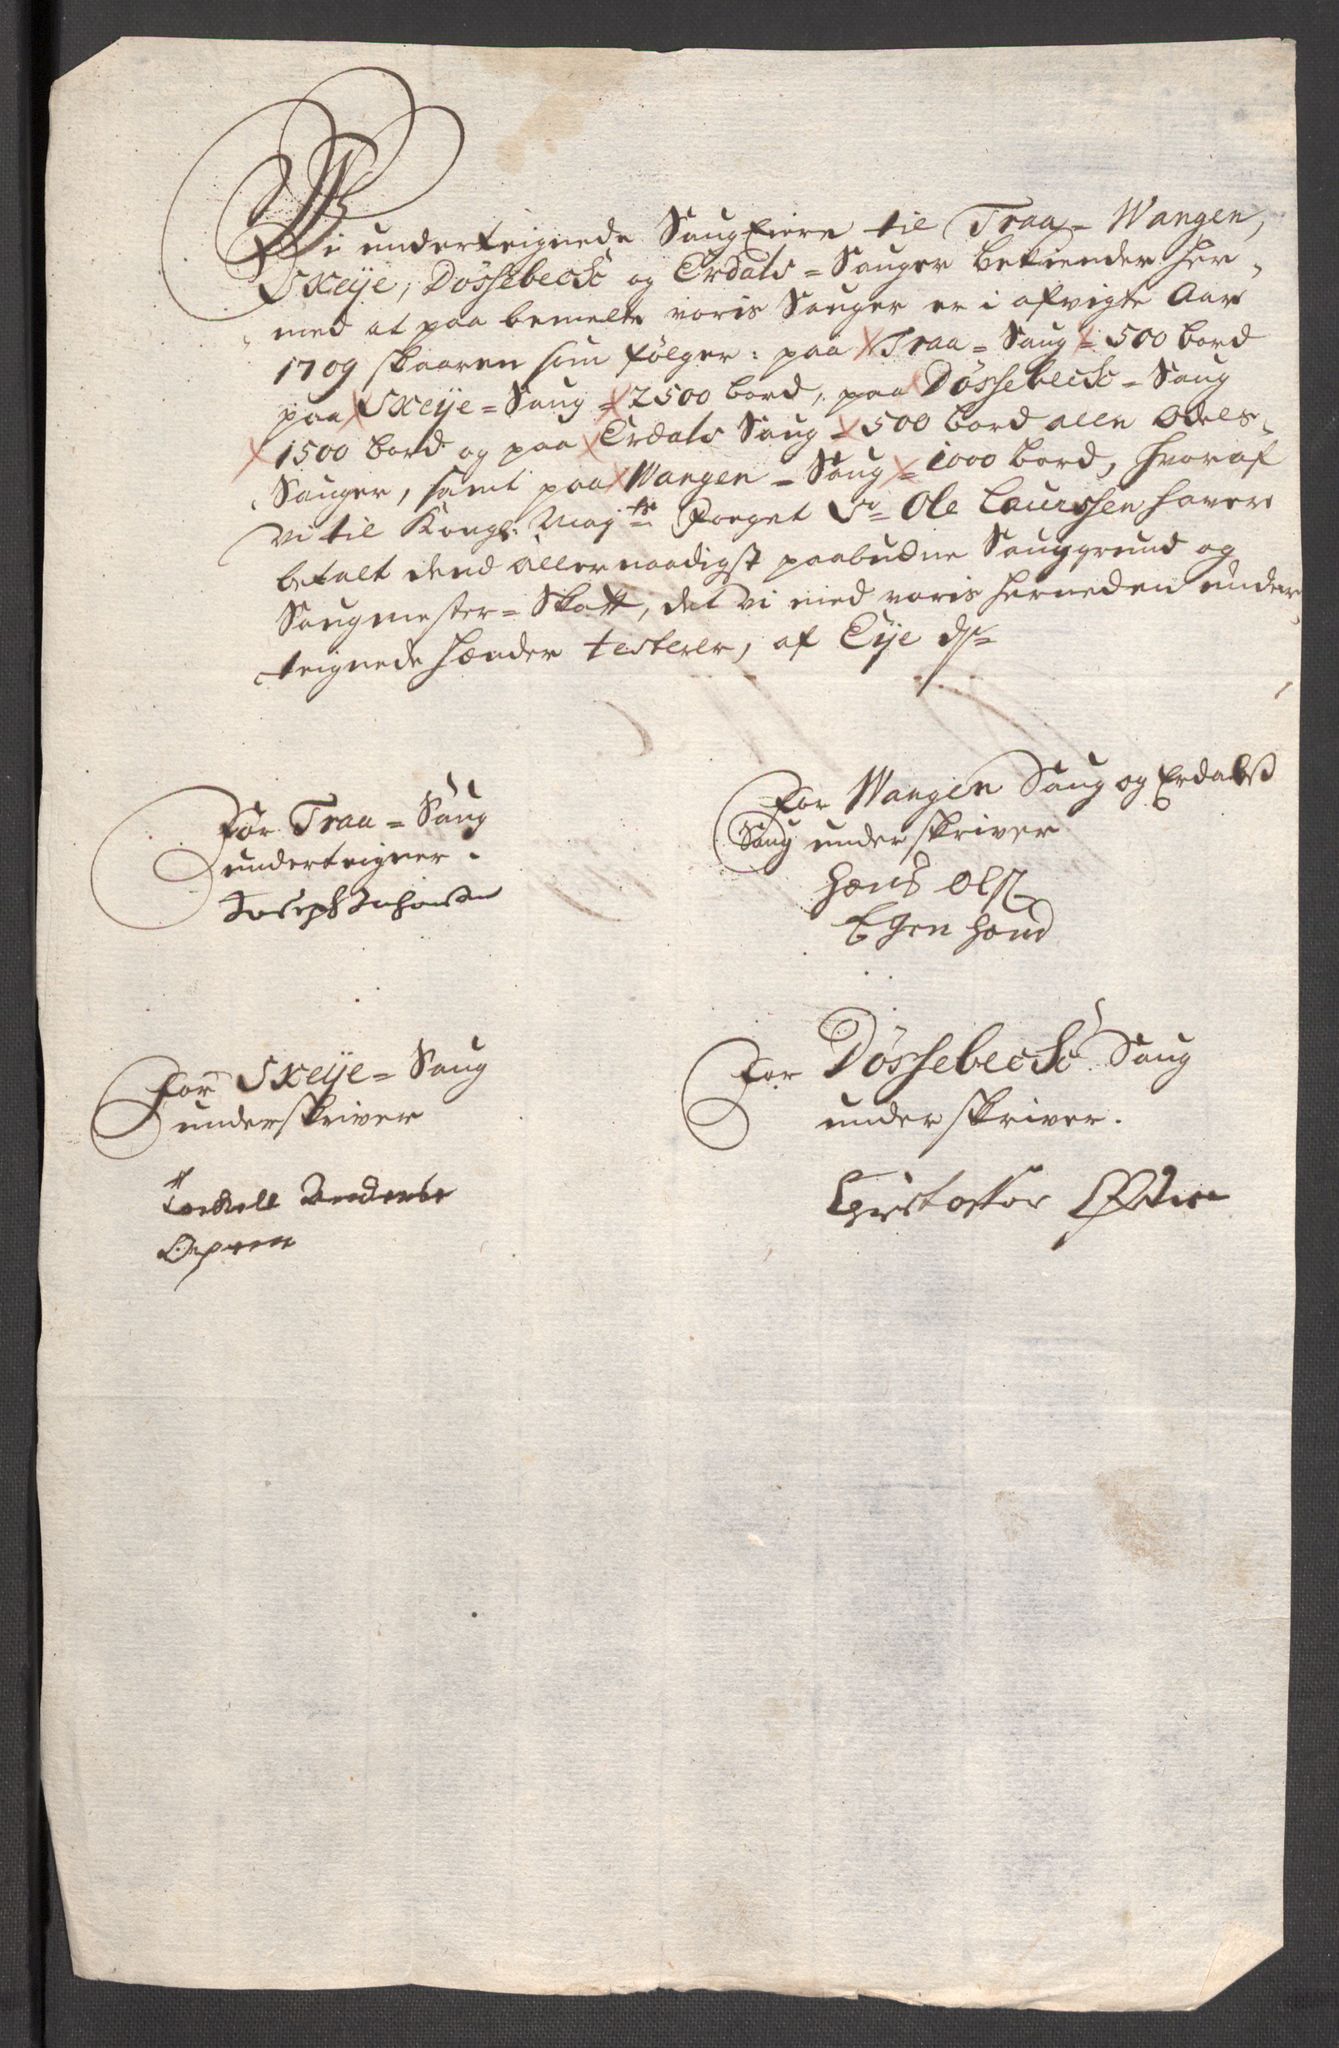 Wi underteignede Saug Eiere til Traa- Wangen,
Skeije, Døssebeck og Erdals = Sauger bekiender her-
med at paa bemelte voris Sauger er i afvigte Aar
1709 skaaren som følger: paa Traa = Saug = 500 bord
paa Skeije = Saug = 2500 bord, paa Døssebeck = Saug
1500 bord og paa Erdals Saug = 500 bord alle Odels-
Sauger, samt paa Wangen = Saug = 1000 bord, hvoraf
vi til Kongl: May:ts Foeget Sr Ole Laurssen haver
betalt dend allernaadigst paabudne Sauggrund og
Saugmester = Skatt, det vi med voris herneden under
teignede hænder testerer, af Eije
For Traa = Saug
underteigner.
Joseph Johansen
For Wangen Saug og Erdals
Saug underskriver
Hans Ols:
Egen haand
For Skeije = Saug
underskriver
Torkell
For Døssebeck Saug
underskriver.
Christoffer